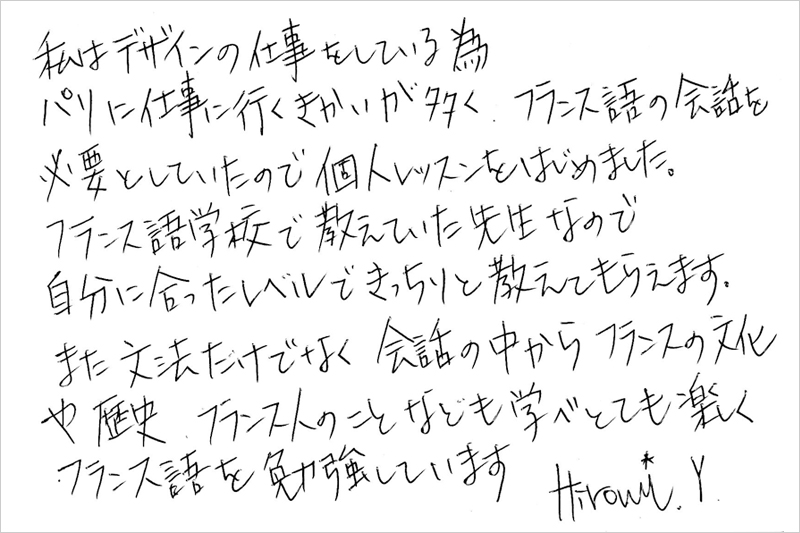 私はデザインの仕事をしている為
パリに仕事に行くきかいが多く、フランス語の会話を
必要としていたので個人レッスンをはじめました。
フランス語学校で教えていた先生なので
自分に合ったレベルできっちりと教えてもらえます。
また文法だけでなく会話の中からフランスの文化
や歴史、フランス人のことなども学べとても楽しく
フランス語を勉強しています
Hiromi.Y.